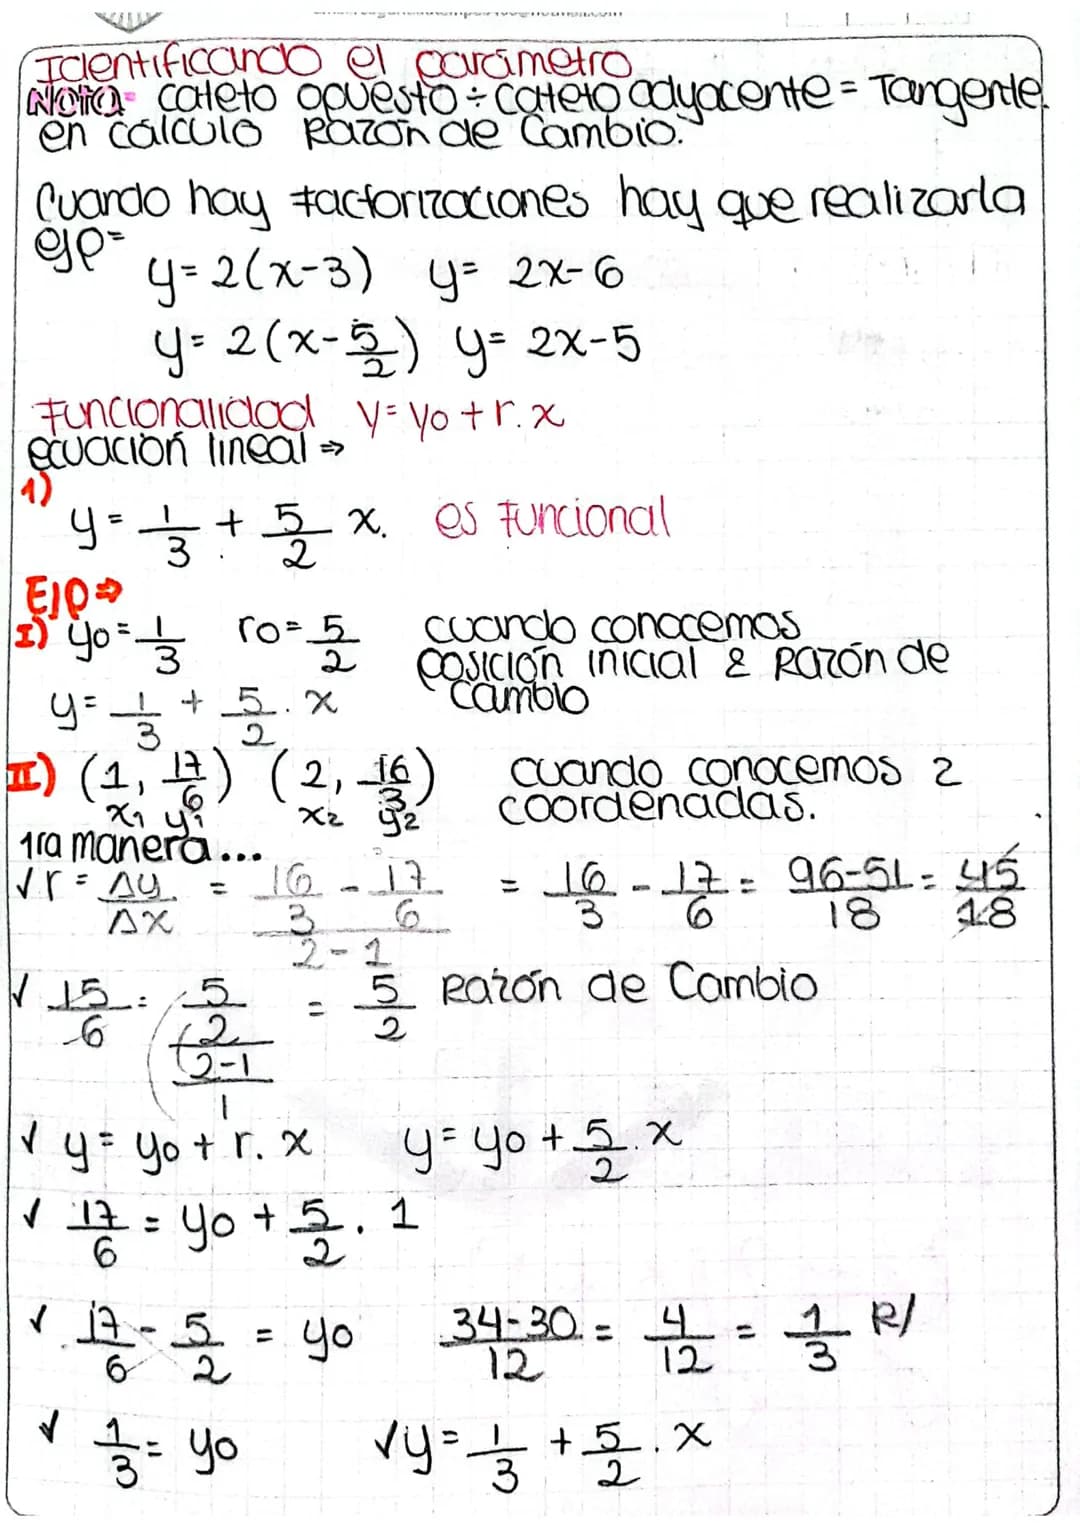 Identificando el parámetro
Nota= cateto opuesto ÷ cateto adyacente = Tangente.
en cálculo Razón de Cambio.
Cuando hay factorizaciones hay que realizarla
ejp=
y= 2(x-3) y= 2x-6
y= 2(x-5/2) y= 2x-5
Funcionalidad y= yo + r. x
ecuación lineal ⇒
1)
y= 1/3 + 5/2 x. es funcional
Ejp⇒
I) yo= 1/3 ro= 5/2 cuando conocemos
posición inicial & Razón de
Cambio
y= 1/3 + 5/2 . x
II) (1, 17/6) (2, 16/3) cuando conocemos 2
x1 y1 x2 y2 coordenadas.
1ra manera...
√ r = Δy/Δx = (16/3 - 17/6)/(2-1) = 16/3 - 17/6 = 96-51/18 = 45/18
√ 15/6 = (5/2)/((2-1)/1) = 5/2 Razón de Cambio
√ y= yo + r. x y= yo + 5/2 . x
√ 17/6 = yo + 5/2 . 1
√ 17/6 - 5/2 = yo 34-30/12 = 4/12 = 1/3 R/
√ 1/3 = yo √ y= 1/3 + 5/2 . x